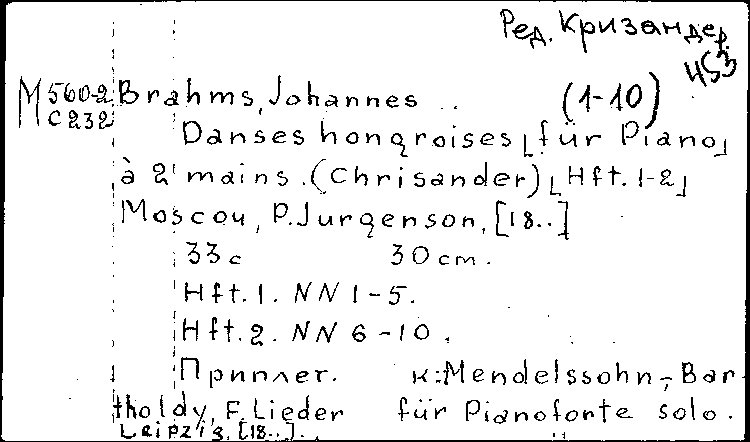 Ред. Кризандер.
ИЗЗ
M 560-2 Brahms, Johannes .. (1-10)
C 232
Danses hongroises [für Piano]
à 2 mains. (Chrisander) [Hft. 1-2]
Moscou, P. Jurgenson, [18..]
33 c 30 cm.
Hft. 1. NN 1-5.
Hft. 2. NN 6-10.
Приплет. к: Mendelssohn-Bar-
tholdy, F. Lieder für Pianoforte solo.
Leipzig, [18..].